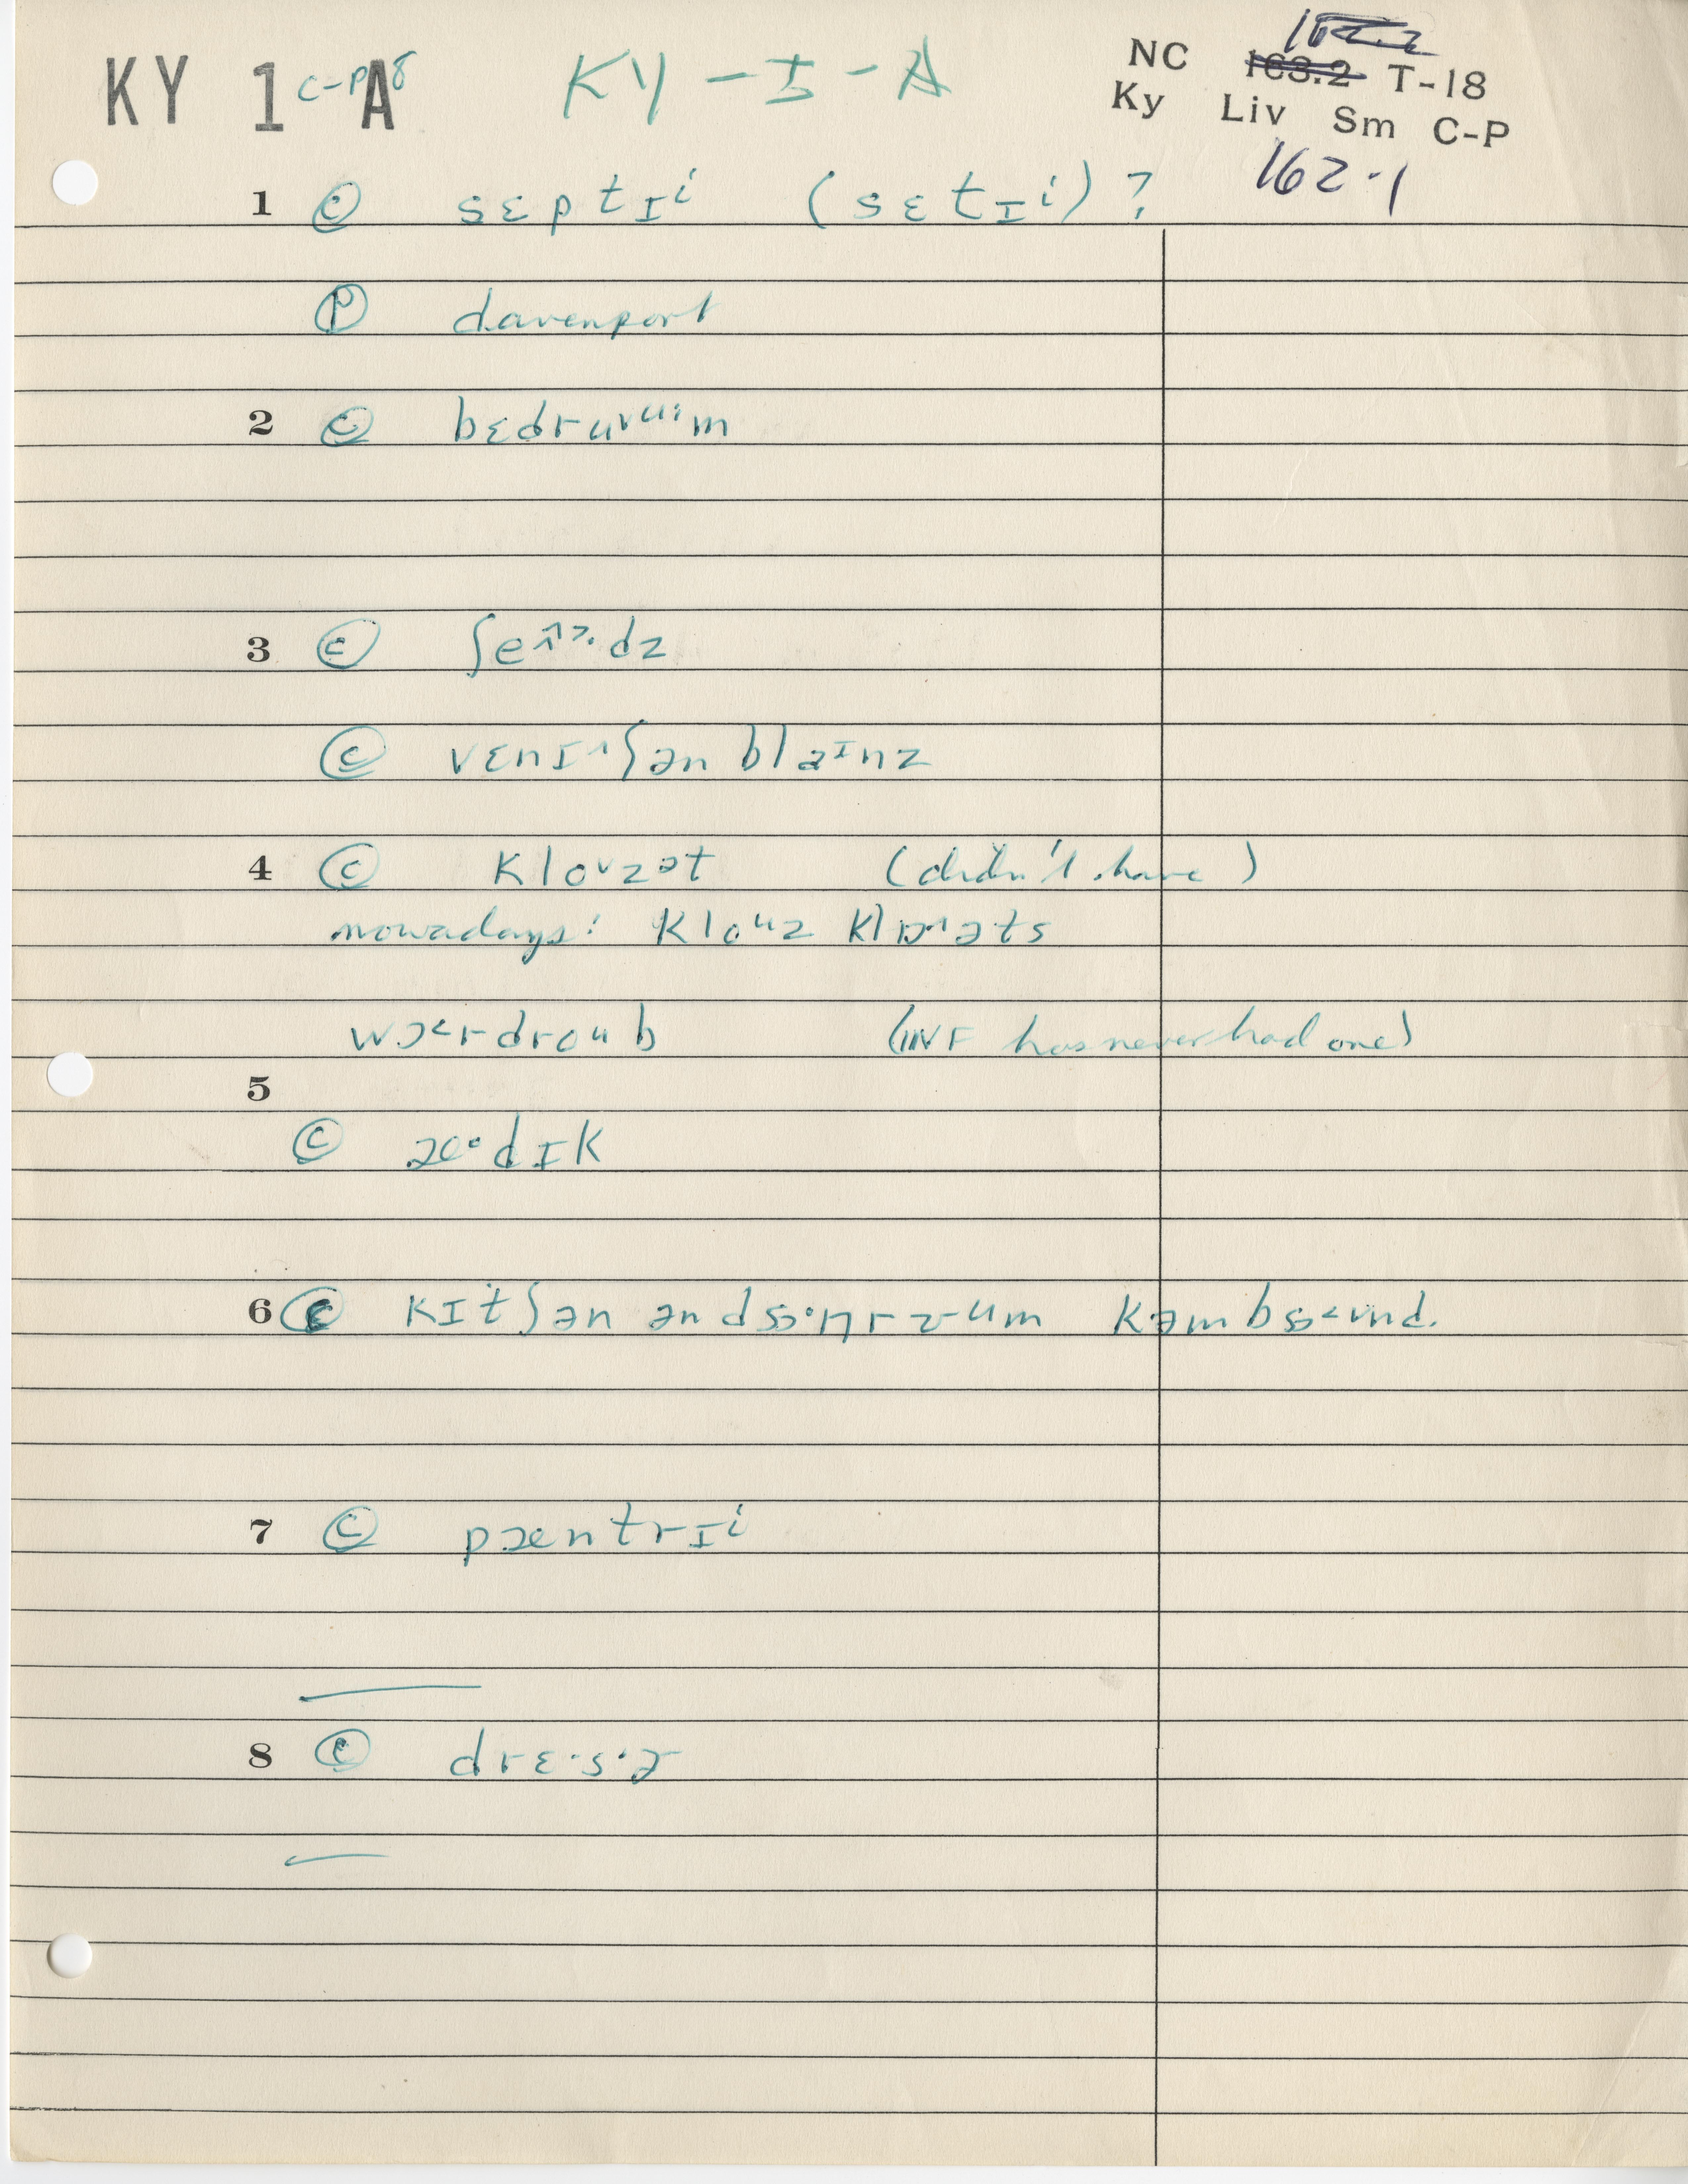 KY 1 A C-P8 KY-I-A NC 163.2 T-18
Ky Liv Sm C-P
162.1
1 Ⓒ sɛptɪⁱ (sɛtɪⁱ) ?
Ⓟ davenport
2 Ⓒ bɛdruᵛᵘˑm
3 Ⓒ ʃeɪ˄ə˃·dz
Ⓒ vɛnɪ˄ʃən blaɪnz
4 Ⓒ klouzət (didn't have)
nowadays: klouz klɒ˄əts
wɔ˂rdroub (INF has never had one)
5
Ⓒ æ·dɪk
6 Ⓒ kɪtʃən kəmba˂ɪnd.
7 Ⓒ pæntrɪⁱ
8 Ⓒ drɛ·s·ɚ